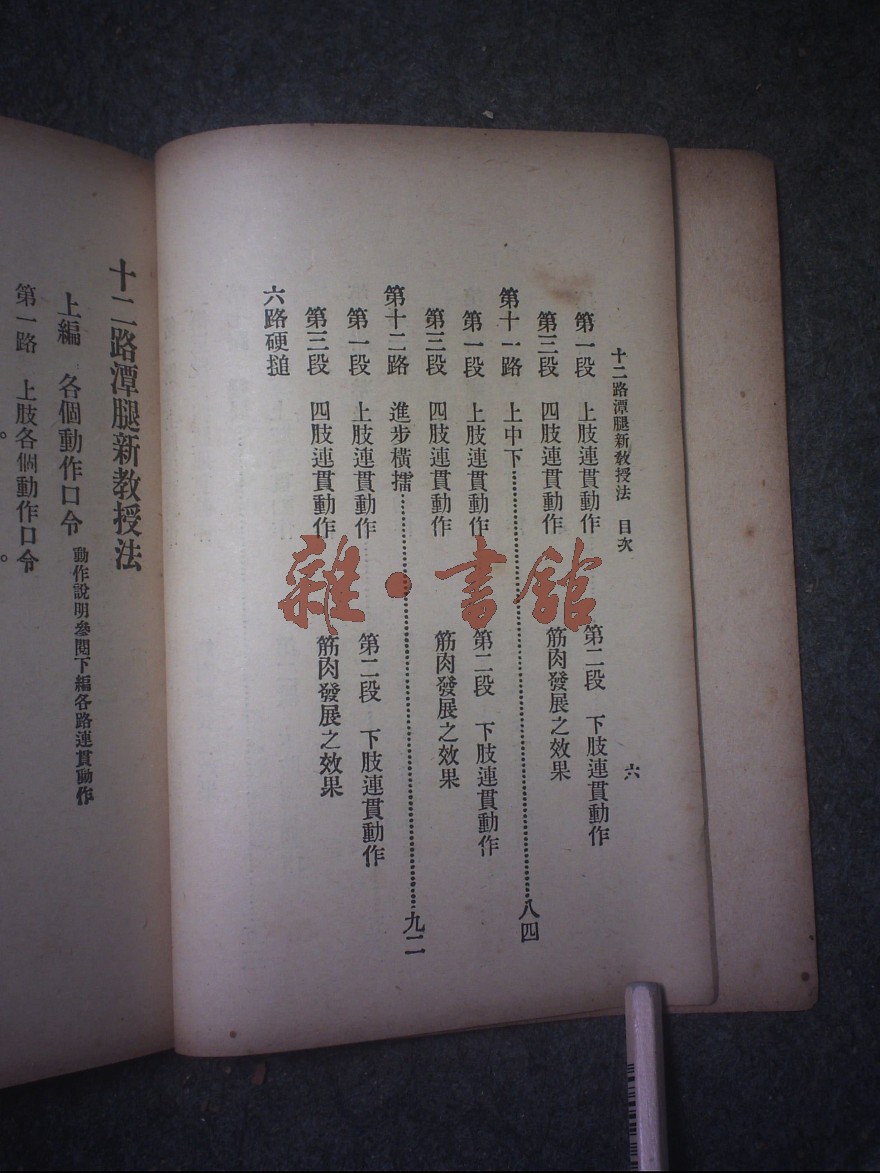 十二路潭腿新敎授法 目次 六
第一段 上肢連貫動作 第二段 下肢連貫動作
第三段 四肢連貫動作 筋肉發展之效果
第十一路 上中下……八四
第一段 上肢連貫動作 第二段 下肢連貫動作
第三段 四肢連貫動作 筋肉發展之效果
第十二路 進步橫擂……九二
第一段 上肢連貫動作 第二段 下肢連貫動作
第三段 四肢連貫動作 筋肉發展之效果
六路硬搥
十二路潭腿新教授法
上編 各個動作口令 動作說明參閱下編各路連貫動作
第一路 上肢各個動作口令
雜·書館